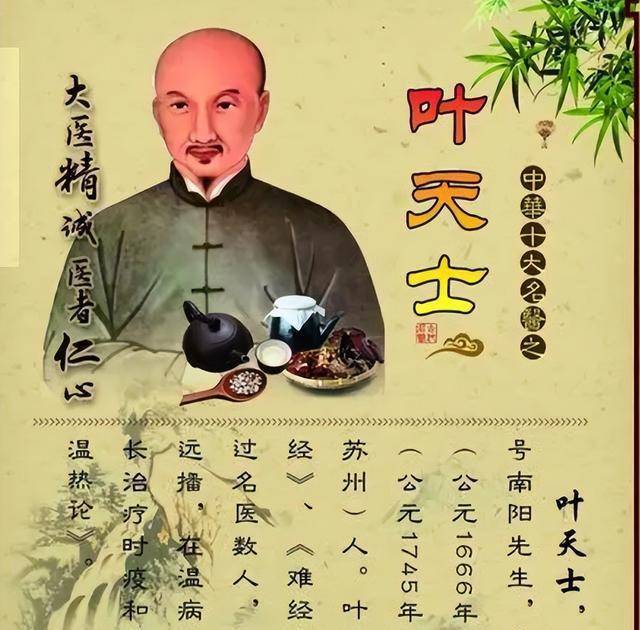 中華十大名醫之
叶天士
大医精诚医者仁心
叶天士，
号南阳先生，
（公元1666年
（公元1745年
苏州）人。叶
经》、《难经
过名医数人，
远播，在温病
长治疗时疫和
温热论》。